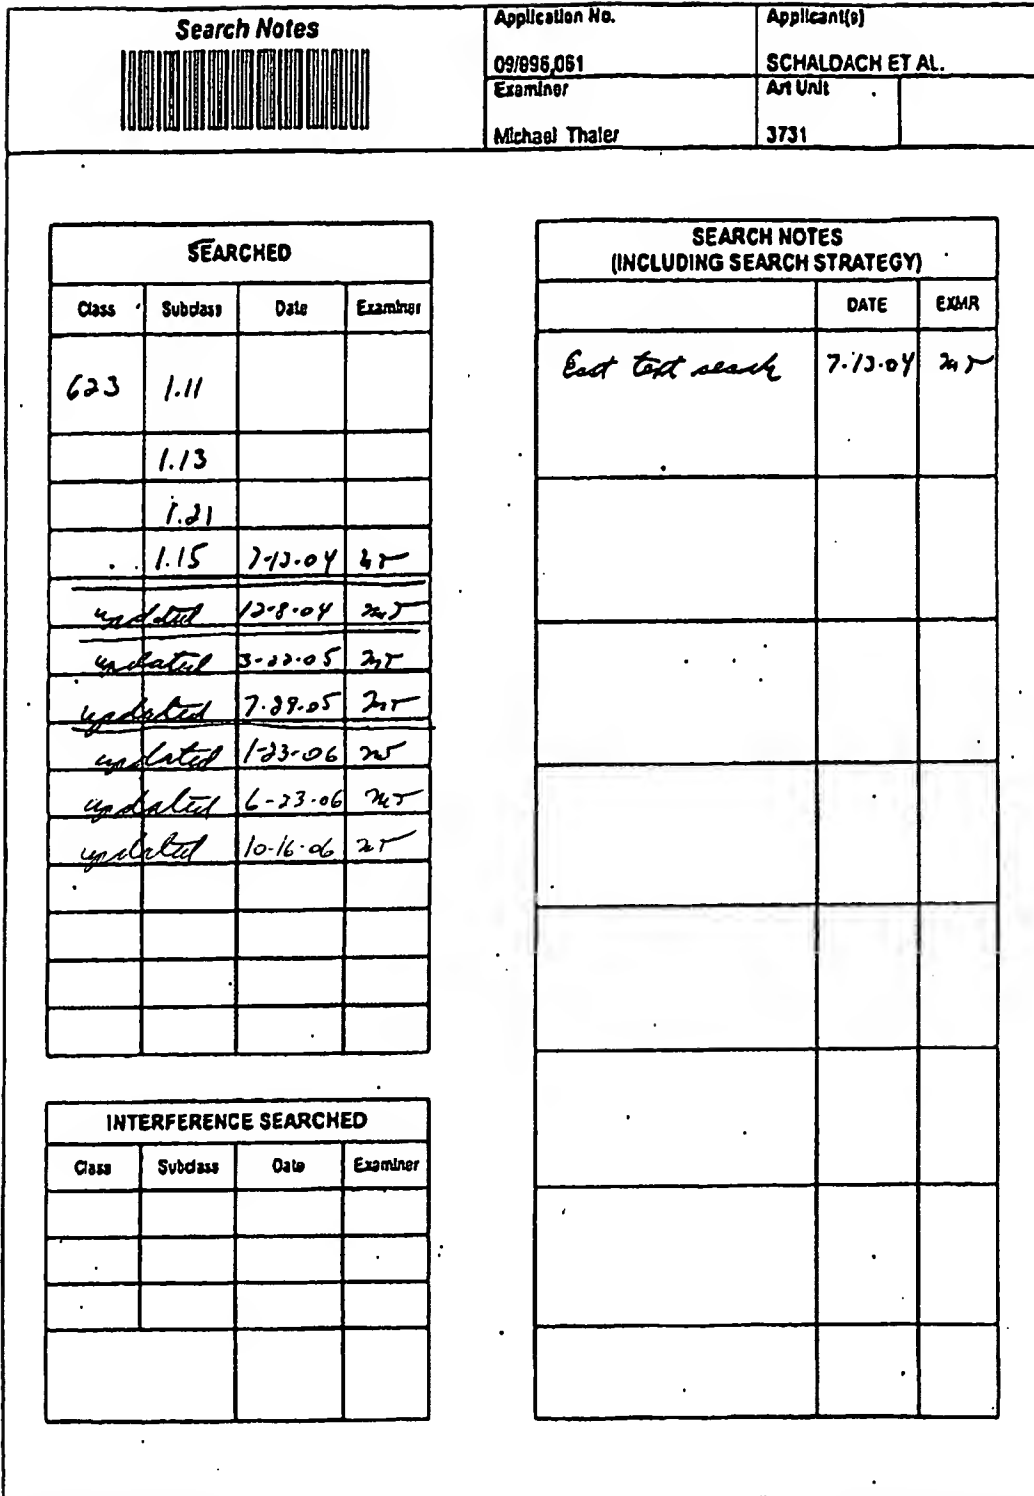 Search Notes
Application No.
Applicant(s)
09/896,061
SCHALDACH ET AL.
Examiner
Art Unit
Michael Thaler
3731
SEARCHED
Class Subclass Date Examiner
623 1.11
1.13
1.21
1.15 7-13-04 MT
updated 12-8-04 MT
updated 3-22-05 MT
updated 7-29-05 MT
updated 1-23-06 MT
updated 6-23-06 MT
updated 10-16-06 MT
INTERFERENCE SEARCHED
Class Subclass Date Examiner
SEARCH NOTES
(INCLUDING SEARCH STRATEGY)
DATE EXMR
East text search 7-13-04 MT